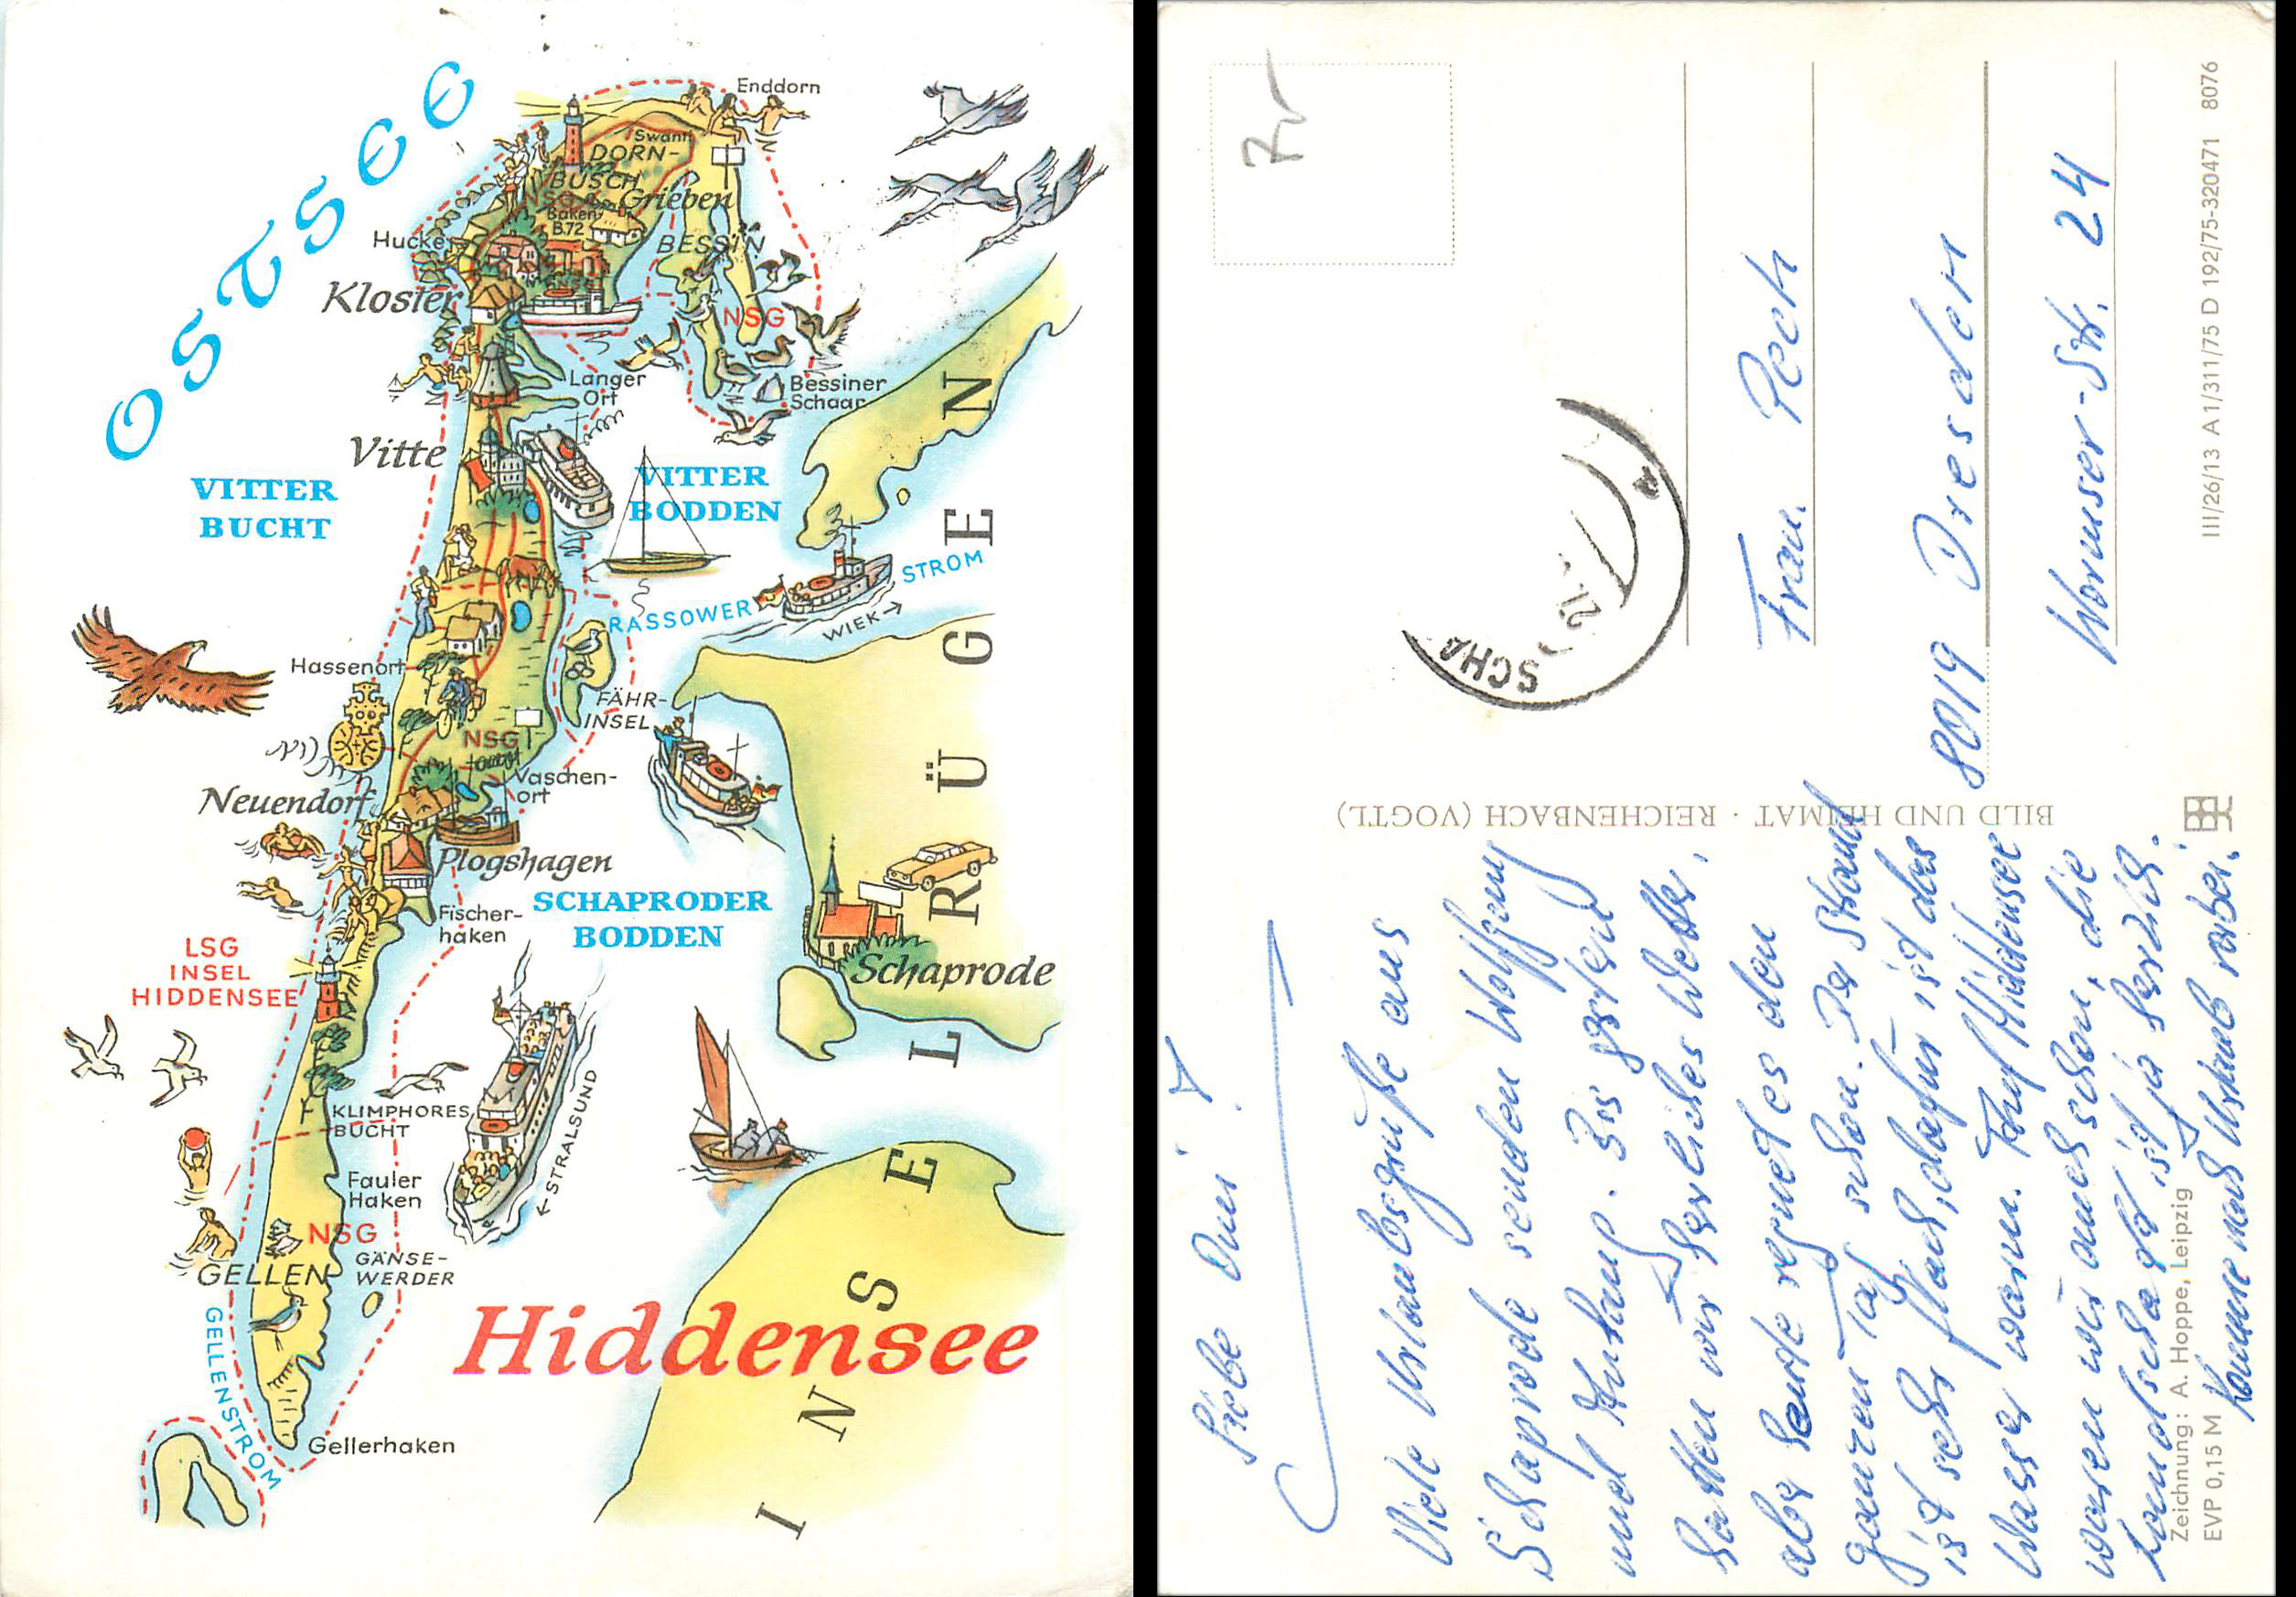 OSTSEE
Enddorn
Swanti
DORN-
BUSCH
NSG
Grieben
Baken
B.72
Hucke
BESSIN
Kloster
NSG
Langer
Ort
Bessiner
Schaar
Vitte
VITTER
BUCHT
VITTER
BODDEN
RASSOWER
STROM
WIEK
Hassenort
FÄHR-
INSEL
NSG
Vaschen-
ort
Neuendorf
Plogshagen
Fischer-
haken
SCHAPRODER
BODDEN
Schaprode
LSG
INSEL
HIDDENSEE
KLIMPHORES
BUCHT
STRALSUND
Fauler
Haken
NSG
GELLEN
GÄNSE-
WERDER
GELLENSTROM
Gellerhaken
INSEL RÜGEN
Hiddensee
Liebe
Viele Urlaubsgrüße aus
Schaprode senden Wolfgang
und Anhang. Bis gestern
hatten wir herrliches Wetter,
aber heute regnet es den
ganzen Tag schon. Der Strand
ist sehr flach, dafür ist das
Wasser warm. Auf Hiddensee
waren wir auch schon, die
Landschaft ist ja herrlich.
Komme nach Urlaub vorbei.
Zeichnung: A. Hoppe, Leipzig
EVP 0,15 M
BILD UND HEIMAT · REICHENBACH (VOGTL)
SCHA
21.
Frau Pech
8019 Dresden
Wormser-Str. 24
III/26/13 A 1/311/75 D 192/75-320471 8076